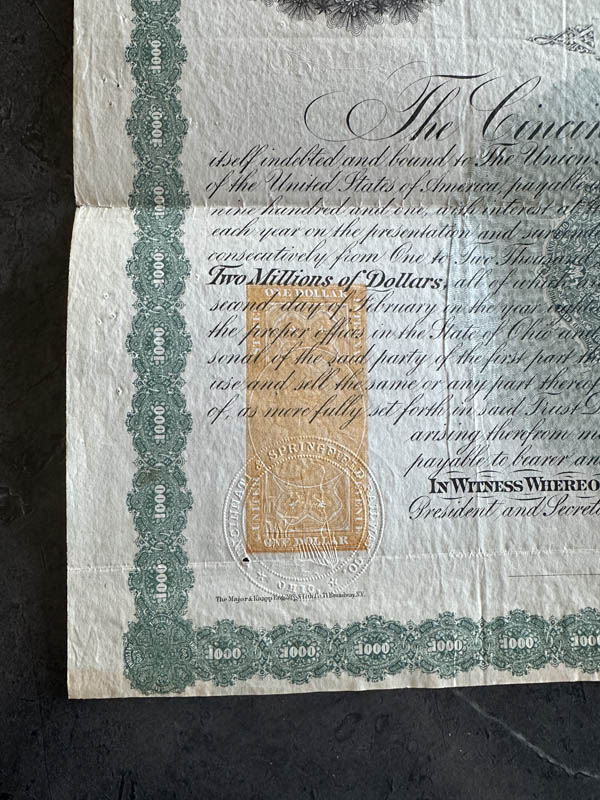 The Cincin
itself indebted and bound to The Union
of the United States of America, payable
nine hundred and one, with interest at th
each year on the presentation and surrend
consecutively from One to Two Thousand
Two Millions of Dollars, all of which
second day of February in the year
the proper offices in the State of Ohio and
sonal of the said party of the first part th
use and sell the same or any part thereof
of, as more fully set forth in said Trust D
arising therefrom
payable to bearer an
IN WITNESS WHEREO
President and Secreta
ONE DOLLAR
ONE DOLLAR
SPRINGFIELD
OHIO
The Major & Knapp Eng. Mfg. & Lith. Co. 71 Broadway, N.Y.
1000
1000
1000
1000
1000
1000
1000
1000
1000
1000
1000
1000
1000
1000